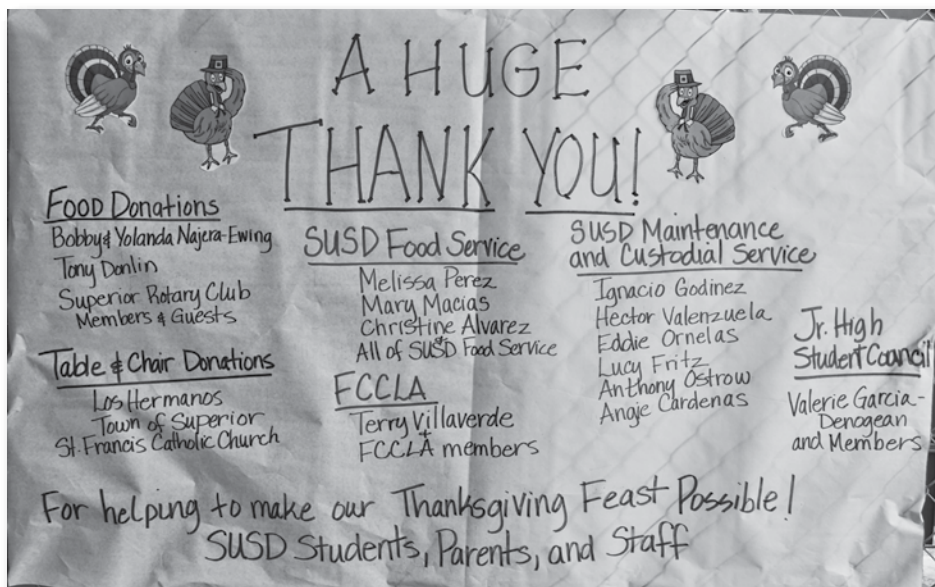 A HUGE
THANK YOU!
Food Donations
Bobby & Yolanda Najera-Ewing
Tony Donlin
Superior Rotary Club
Members & Guests
Table & Chair Donations
Los Hermanos
Town of Superior
St. Francis Catholic Church
SUSD Food Service
Melissa Perez
Mary Macias
Christine Alvarez
&
All of SUSD Food Service
FCCLA
Terry Villaverde
+
FCCLA members
SUSD Maintenance
and Custodial Service
Ignacio Godinez
Hector Valenzuela
Eddie Ornelas
Lucy Fritz
Anthony Ostrow
Angie Cardenas
Jr. High
Student Council
Valerie Garcia-
Denogean
and Members
For helping to make our Thanksgiving Feast Possible!
SUSD Students, Parents, and Staff